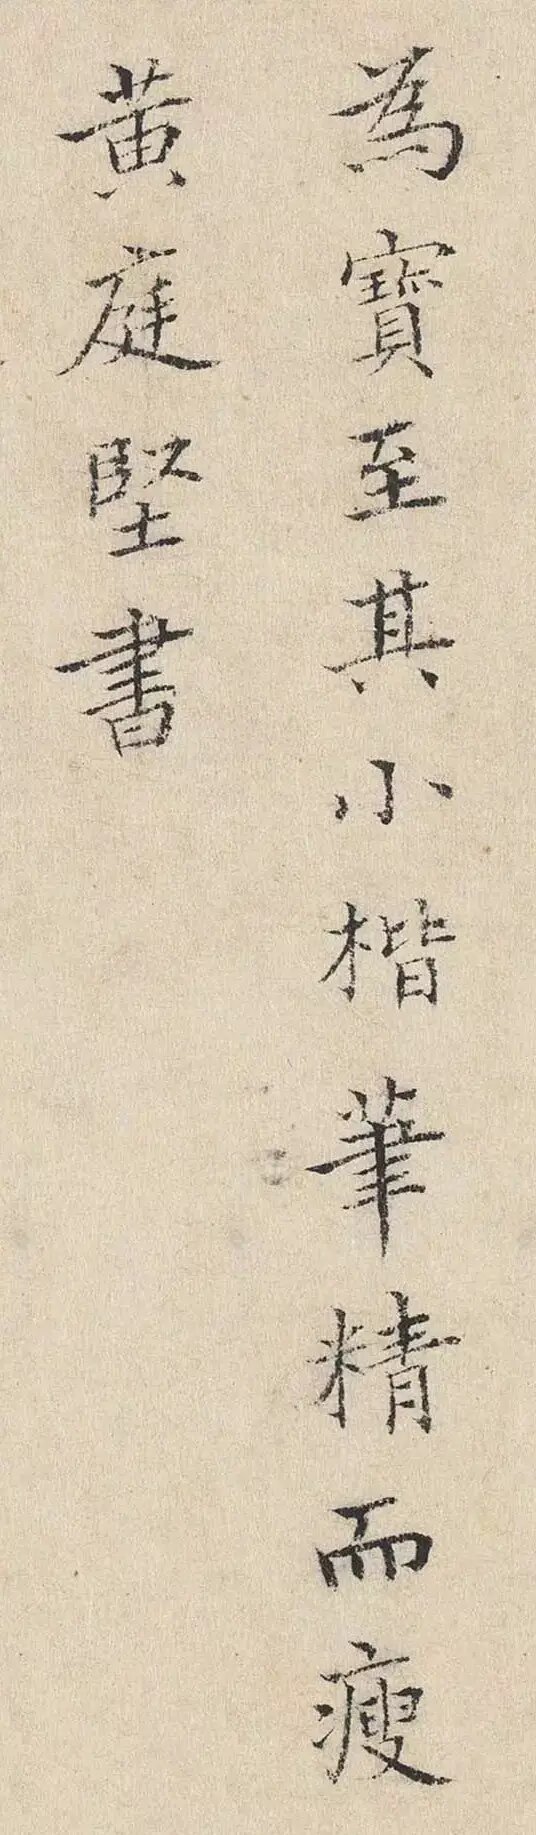 為寶至其小楷筆精而瘦
黃庭堅書